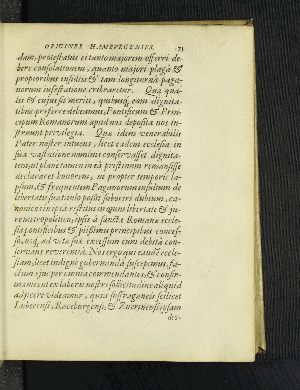 ORIGINES HAMBURGENSES. 171
dam, protestatus ei tanto majorem offerri de-
bere consolationem, quanto majori plagâ &
propioribus insidiis & tam longiturnâ paga-
norum infestatione cribraretur. Qua qua-
lis & cujus sit meriti, quibusq, eam dignita-
tibus præferre debeamus, Pontificum & Prin-
cipum Romanorum apud nos deposita nos in-
struunt privilegia. Qua idem venerabilis
Pater noster intuens, licet eadem ecclesia in
sua vastatione nominis conservasset dignita-
tem, ut plane tamen in ea pristinum remansisse
declararet honorem, ne propter temporis la-
psum, & frequentem Paganorum insultum de
libertate sua tanto posset suboriri dubium, ca-
nonice in ipsa restituit in omni libertate & ju-
re metropolitico, ipsi à sanctæ Romanæ eccle-
siæ pontificibus & piissimis principibus conces-
so, usq, ad vitæ suæ excessum cum debita con-
servans reverentia. Nos ergo qui eandẽ eccle-
siam, licet indigne gubernandâ suscepimus, fa-
ctum ejus per omnia commendantes, & confir-
mantes ut ex labore nostræ sollicitudinis aliquid
adjicere videamur, quia suffraganeis scilicet
Lubecensi, Raceburgensi, & Zuerinensi ipsam
dio-